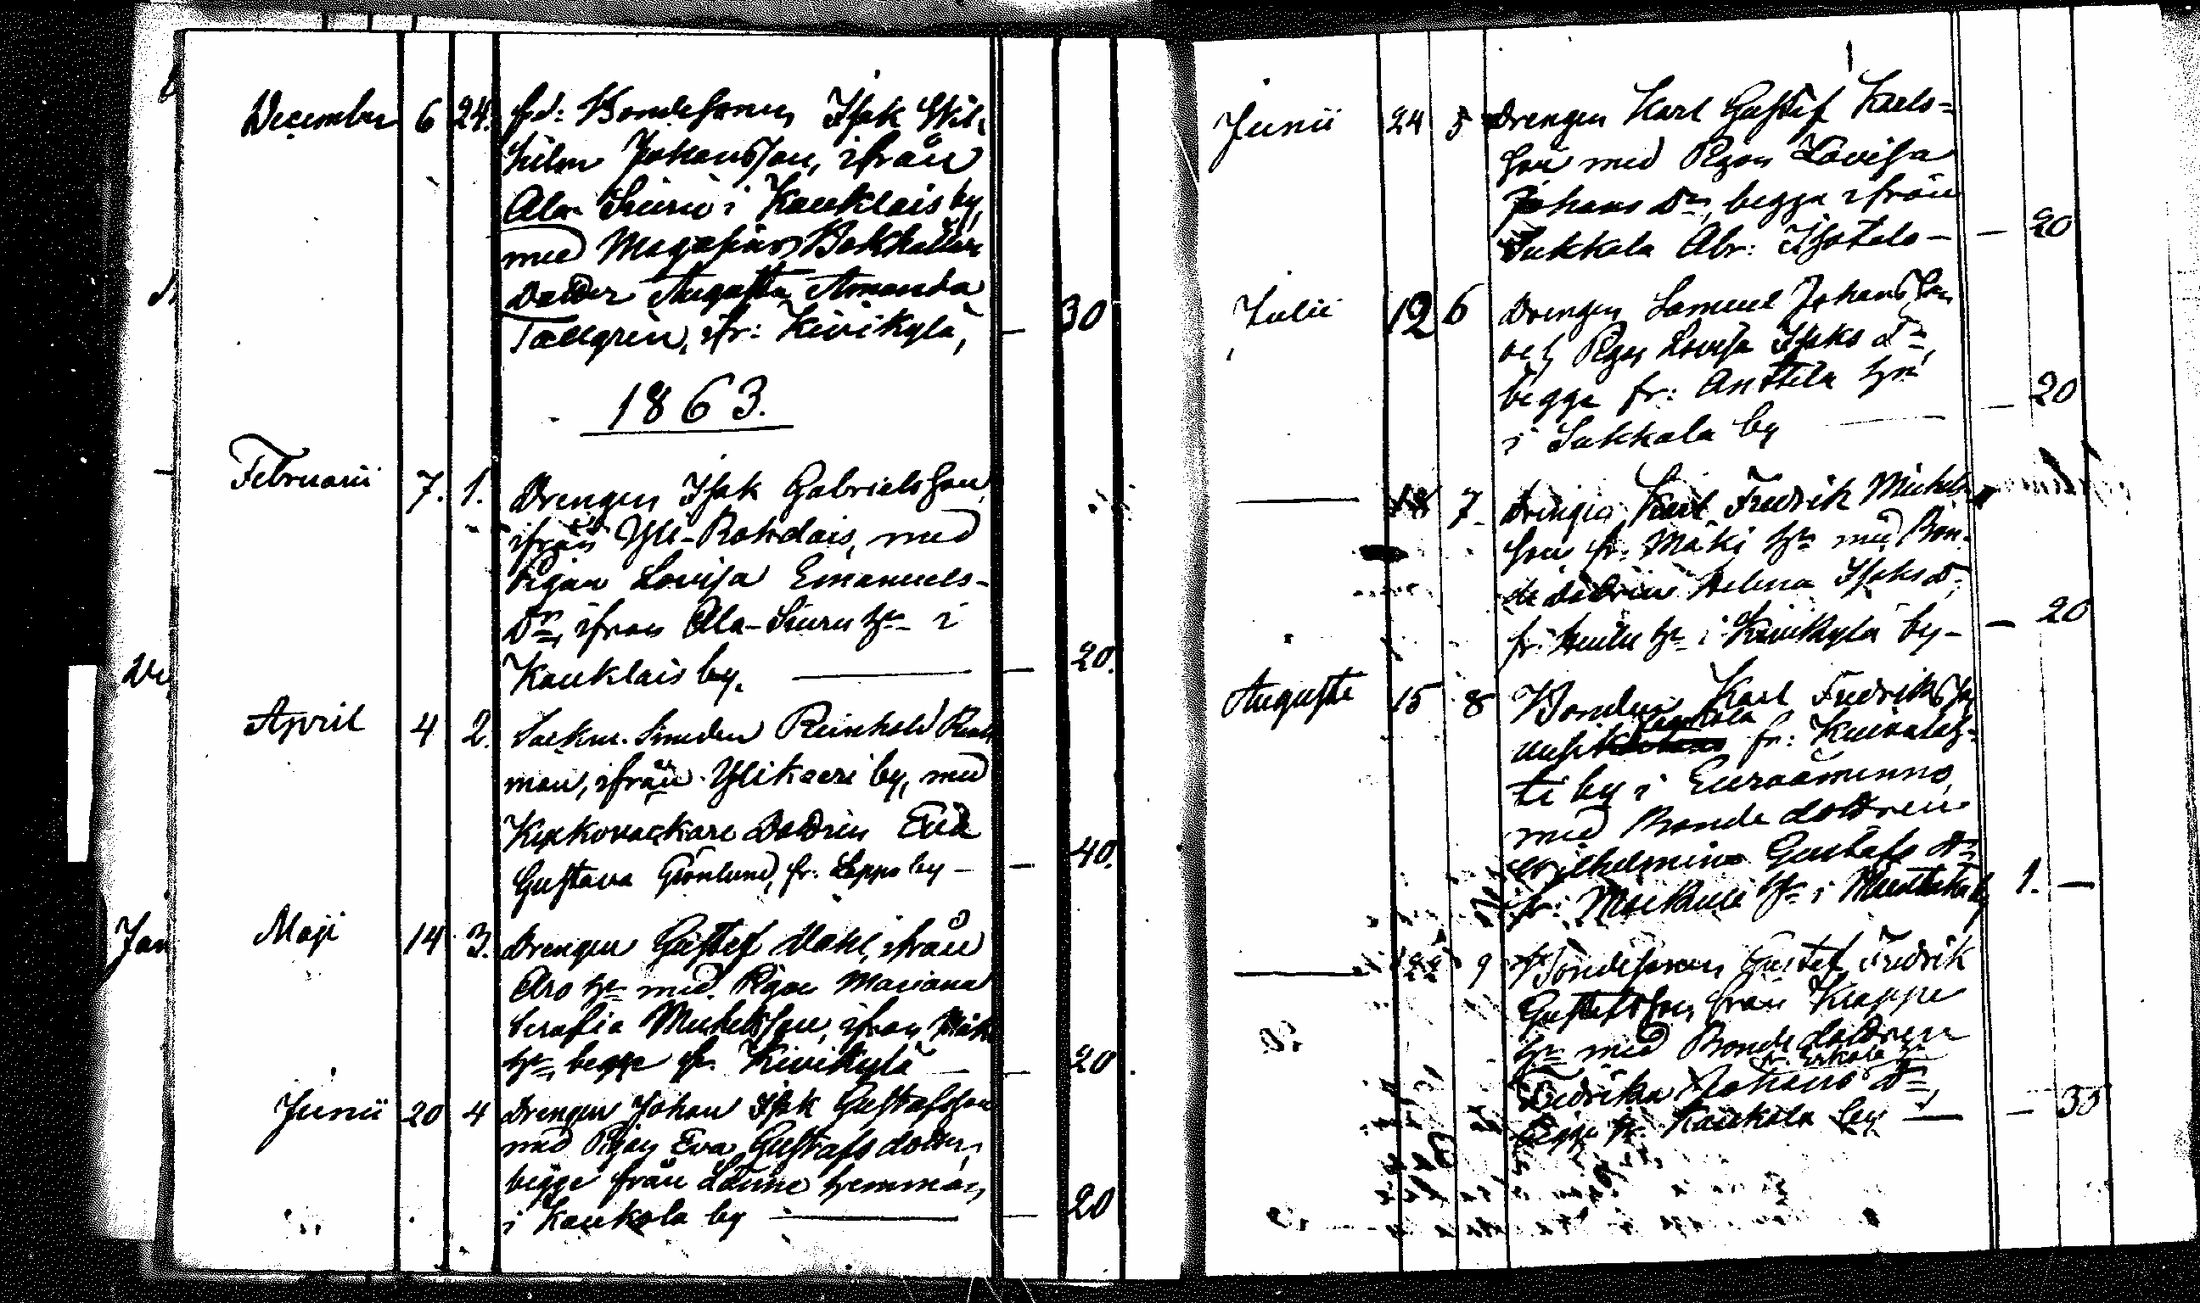 December 6 24. fd: Bondesonen Isak Wil-
helm Johansson, ifrån
Ala Siuru i Kauklais by,
med Magasins Bokhållare
Dotter Augusta Amanda
Tallgrén, ifr: Kivikylä, — 30
1863.
Februarii 7. 1. Drengen Isak Gabrielsson,
ifrån Yli-Rohdais, med
Pigan Lovisa Emanuels-
Dr, ifrån Ala-Siuru hn i
Kauklais by. — 20.
April 4 2. Sockne Smeden Reinhold
man, ifrån Ylikieri by, med
Kyrkovacktare Dottren Eva
Gustava Grönlund, fr. Lappo by — — 40.
Maji 14 3. Drengen Gustef Dahl, ifrån
Aro hn med Pigan Mariana
Serafia Michelsson, ifrån Mäki
hn, begge fr. Kivikylä — 20
Junii 20 4 Drengen Johan Isak Gustafsson
med Pigan Eva Gustafs dotter,
begge från Länne hemman,
i Kaukola by — 20
Junii 24 5 Drengen Karl Gustef Karls-
son med Pigan Lovisa
Johans Dr, begge ifrån
Sukkala Abr: Isotalo — — 20
Julii 12 6 Drengen Samuel Johansson
och Pigan Lovisa Isaks Dr,
begge fr: Anttila hn
i Sukkala by — — 20
— 18 7. Drengen Karl Fredrik Michels-
son fr. Mäki hn med Bon-
de dottren Helena Isaks D.
fr. hn i Kivikylä by — — 20
Auguste 15 8 Bonden Karl Fredriksson
fr: Kuivalah-
ti by i Euraåminne,
med Bonde dottren
Wilhelmina Gustafs Dr
fr: hn i by 1. —
— 22 9 Bondesonen Gustef Fredrik
Gustafsson från Knappe
hn med Bonde dottren
fr. Erkola hn
Fredrika Johans Dr,
begge fr. Kaukola by — — 35